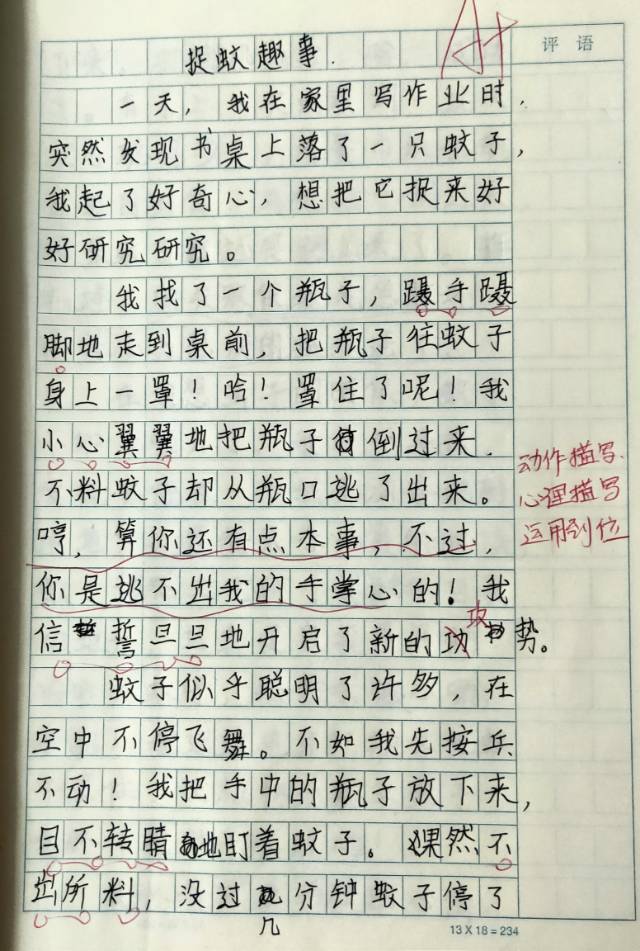 A+
评语
捉蚊趣事.
一天，我在家里写作业时，
突然发现书桌上落了一只蚊子，
我起了好奇心，想把它捉来好
好研究研究。
我找了一个瓶子，蹑手蹑
脚地走到桌前，把瓶子往蚊子
身上一罩！哈！罩住了呢！我
小心翼翼地把瓶子倒过来.
不料蚊子却从瓶口逃了出来。
哼，算你还有点本事，不过，
你是逃不出我的手掌心的！我
信誓旦旦地开启了新的攻势。
蚊子似乎聪明了许多，在
空中不停飞舞。不如我先按兵
不动！我把手中的瓶子放下来，
目不转睛地盯着蚊子。果然不
出所料，没过几分钟蚊子停了
动作描写.
心理描写
运用到位
13×18=234